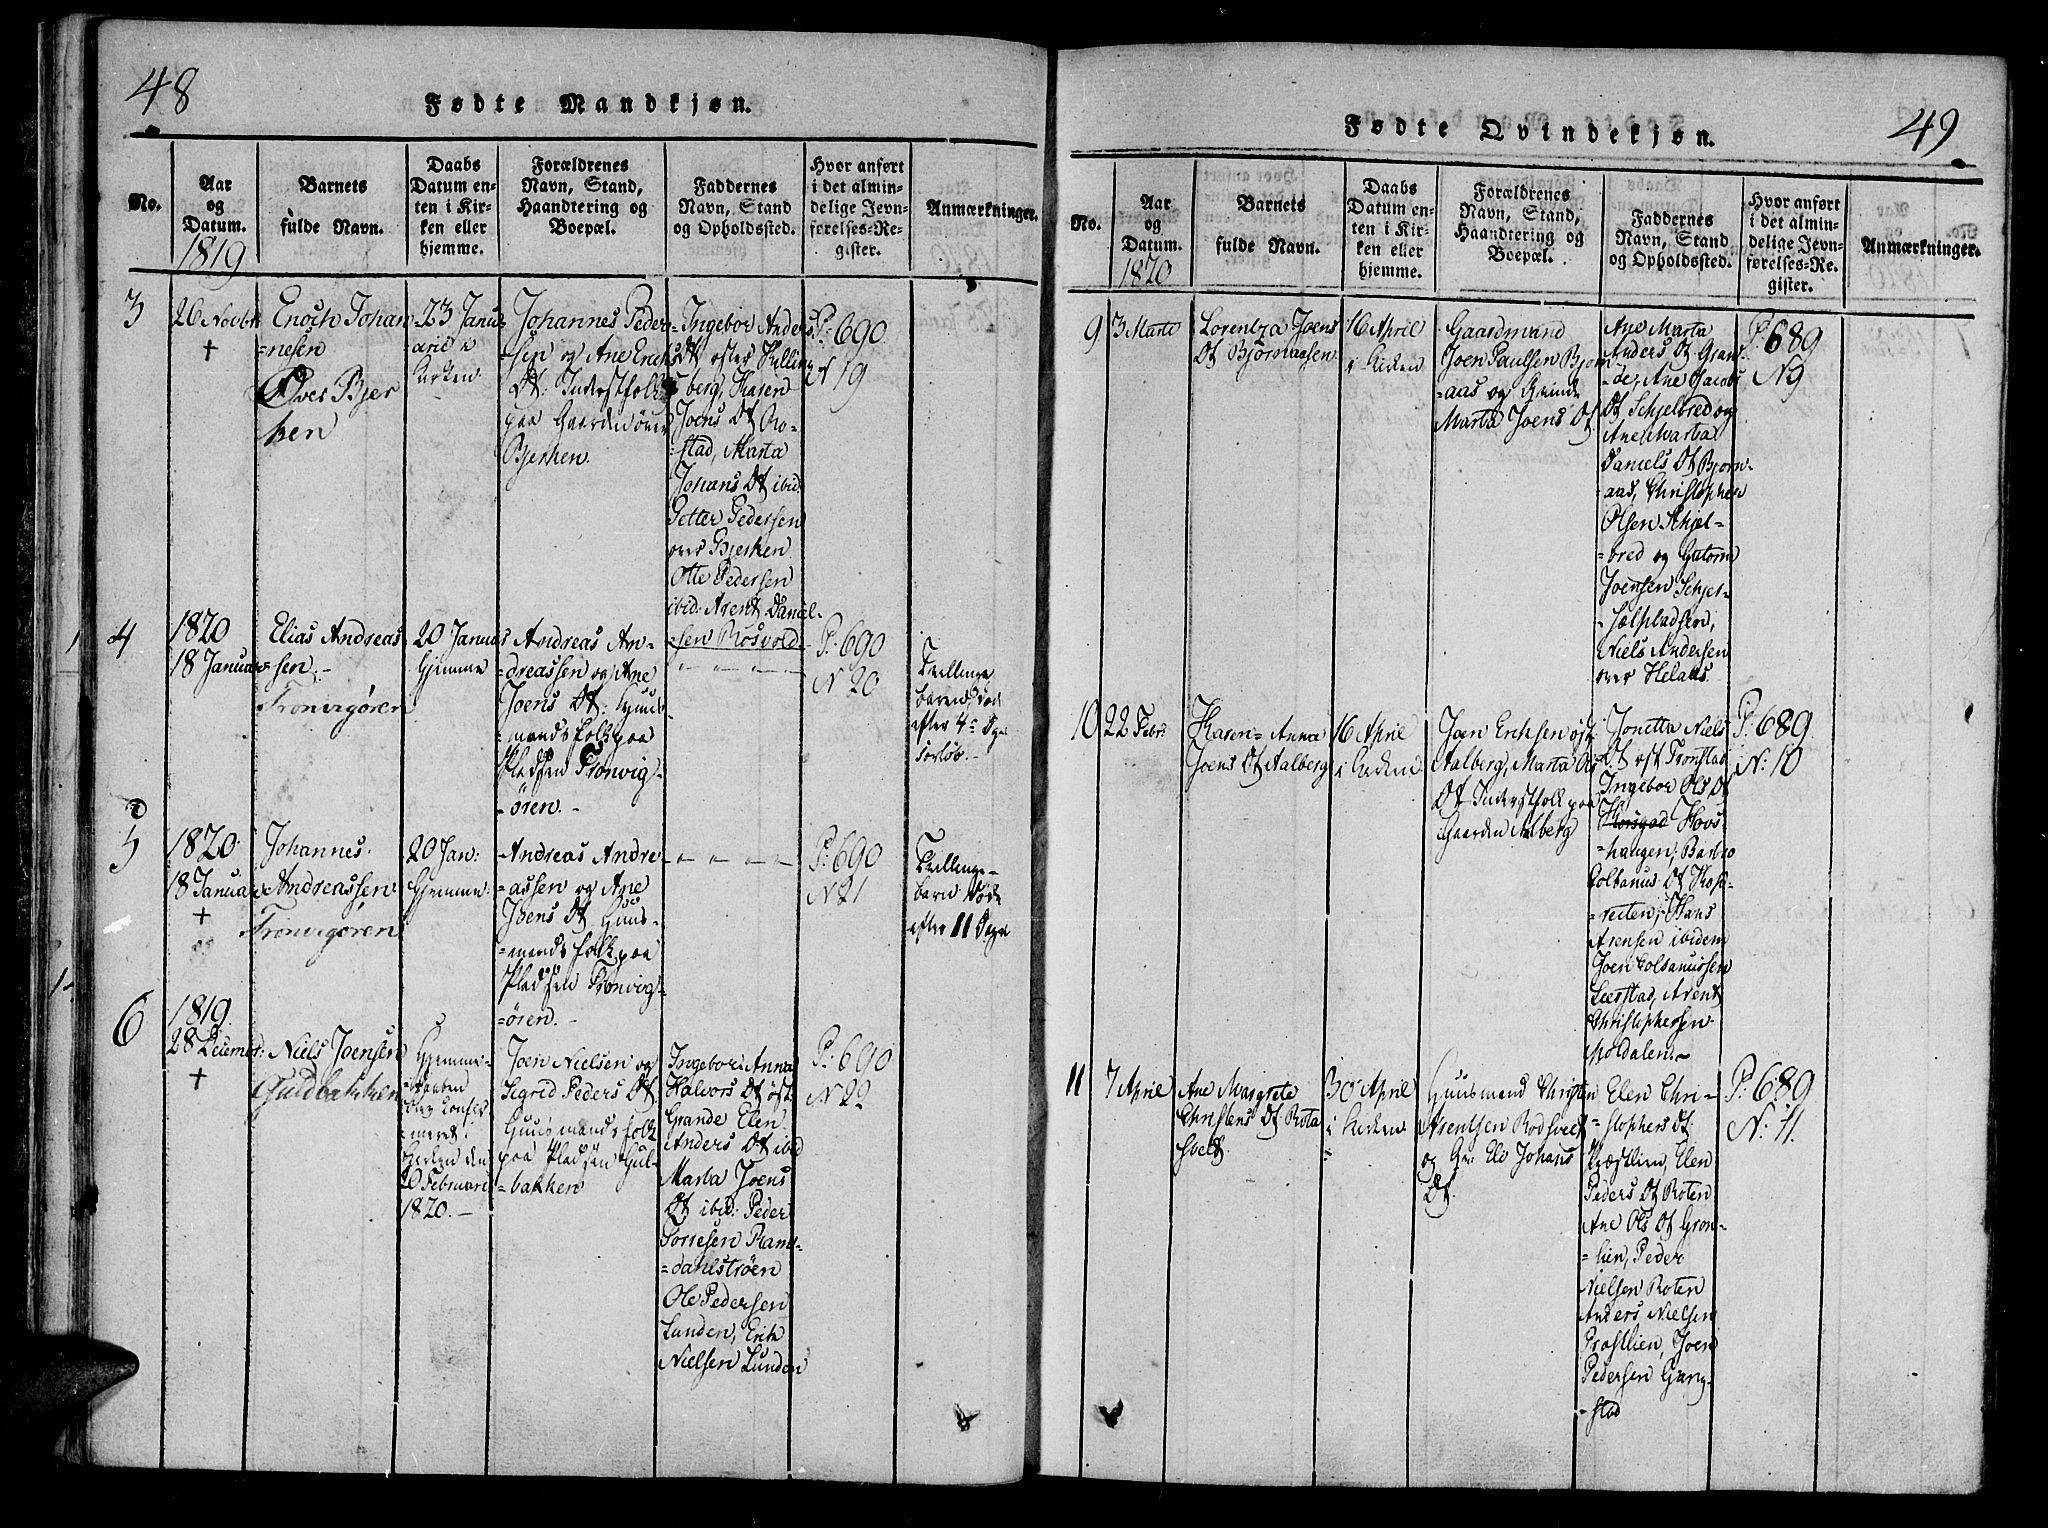 48
Fødte Mandkjøn.
No.
Aar
og
Datum.
1819
Barnets
fulde Navn.
Daabs
Datum en-
ten i Kir-
ken eller
hjemme.
Forældrenes
Navn, Stand,
Haandtering og
Boepæl.
Faddernes
Navn, Stand
og Opholdssted.
Hvor anført
i det almin-
delige Jevn-
førelses-Re-
gister.
Anmærkninger.
3
26 Novbr
+
Enoch Johan
=nesen
Øver Bjer
ken
23 Janu
=arii i
Kirken
Johannes Peder
=sen og Ane Erichs
Dt: Inderstfolk
paa Gaarden över
Bjerken
=Ingebor Anders
Dt öster Helling
berg, Karen
Joens Dt Ro-
=stad, Marta
Johans Dt ibid.
Petter Pedersen
over Bjerken
Otte Pedersen
ibid: Arent Daniel-
=sen Rösvold
P: 690
N 19
4
1820
18 Januar
Elias Andreas-
sen.-
Tronvigören
20 Januar
hjemme
Andreas An-
=dreassen og Ane
Joens Dt: Huus-
=mandsfolk paa
Pladsen Tronvig
=ören.-
P: 690
N 20
Tvillinge
barn, död
efter 4re Dage
Forløb.-
5
1820
18 Januar
+
Johannes
Andreassen
Tronvigören
20 Jan:
hjemme
Andreas Andre
=assen og Ane
Joens Dt Huus-
=mandsfolk paa
Pladsen Tronvig
=ören.-
P: 690
N 21
Tvillinge-
barn döde
efter 11 Dage
6
1819
28 Decembr:
+
Niels Joensen
Guldbakken
Hjemme-
=daaben
blev Confir
=meret i
Kirken den
20 Februari
1820.-
Joen Nielsen og
Sigrid Peders Dt.
Huusmandsfolk
paa Pladsen Gul-
=bakken
Ingebor Anna
Halvors Dt öst.
Grande Elen
Anders Dt ibid
Marta Joens
Dt ibid: Peder
Torresen Ram-
=dahlströen
Ole Pedersen
Lunden, Erik
Nielsen Lunden
P: 690
N 22
49
Fødte Qvindekjøn.
No.
Aar
og
Datum.
1820
Barnets
fulde Navn.
Daabs
Datum en-
ten i Kir-
ken eller
hjemme.
Forældrenes
Navn, Stand,
Haandtering og
Boepæl.
Faddernes
Navn, Stand
og Opholdssted.
Hvor anført
i det almin-
delige Jevn-
førelses-Re-
gister.
Anmærkninger.
9
3 Marts
Lorentza Joens
Dt Björnaasen
16 April
i Kirken
Gaardmand
Joen Paulsen Bjorn
=aas og Qvinde
Marta Joens Dt.
Ane Marta
Anders Dt Gran-
=de, Ane Jacobs
Dt Schjelbred og
Ane Marta
Daniels Dt Bjorn-
=aas, Christopher
Olsen Skjel-
=bred og Gutorm
Joensen Schjel-
Niels Andersen
over Helaas
P: 689
N 9
10
22 Febr.
Karen Anna
Joens Dt Aalberg
16 April
i Kirken
Joen Erichsen öst
Aalberg, Marta Ols
Dt Inderstfolk paa
Gaarden Aalberg
Jonetta Niels
Dt öst Tronstad
Ingebor Ols Dt
Hovs
haugen, Barbro
Colbanus Dt
Hans
Arensen ibidem
Joen Colbanussen
Leerstad, Arent
Christophersen
Moldalen
P: 689
N: 10
11
7 April
Ane Margrete
Christens Dt Rota
svelt
30 April
i Kirken
Huusmand Christen
Arentsen Rodsvelt
og Qv: Eli Johans
Dt.
Elen Chri-
=stophers Dt:
Præstlien, Elen
Peders Dt Roten
Ane Ols Dt Gron-
=lien, Peder
Nielsen Roten
Anders Nielsen
Præstlien, Joen
Pedersen Gang-
=stad
P: 689
N: 11.